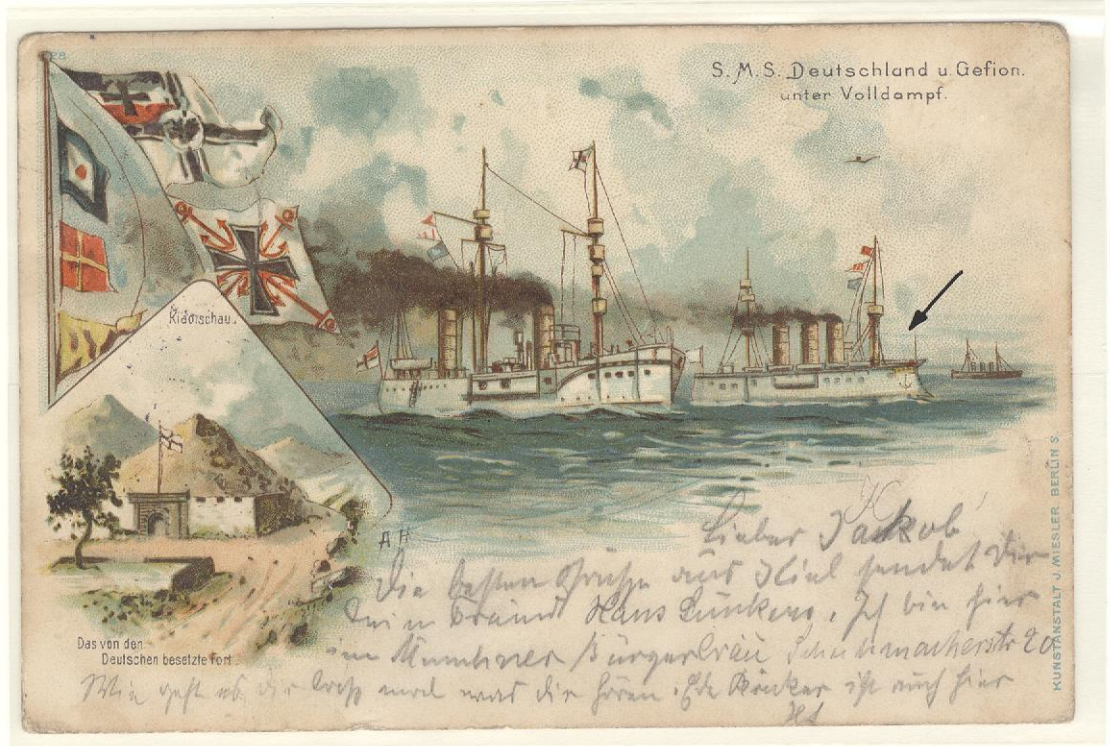 28
S.M.S. Deutschland u. Gefion.
unter Volldampf.
Kiaotschau.
Das von den
Deutschen besetzte Fort.
AH
KUNSTANSTALT J. MIESLER BERLIN S.
Lieber Jackob!
Die besten Grüße aus Kiel sendet Dir
Dein Freund Hans Lünkens. Ich bin hier
im Münchner Bürgerbräu Schuhmacherstr 20
Wie geht es dir laß mal was dir hören. Ede Kröncker ist auch hier
HL